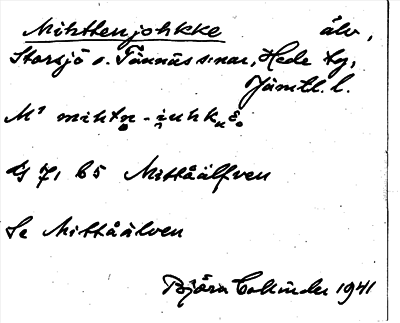 Mihttenjohkke älv,
Storsjö o. Tännäs s:nar, Hede tg,
Jämtl. l.
M¹ mihtn̥ - i̯uhkₐɛ̥
GS 71 b5 Mittåälfven
Se Mittåälven
Björn Collinder 1941